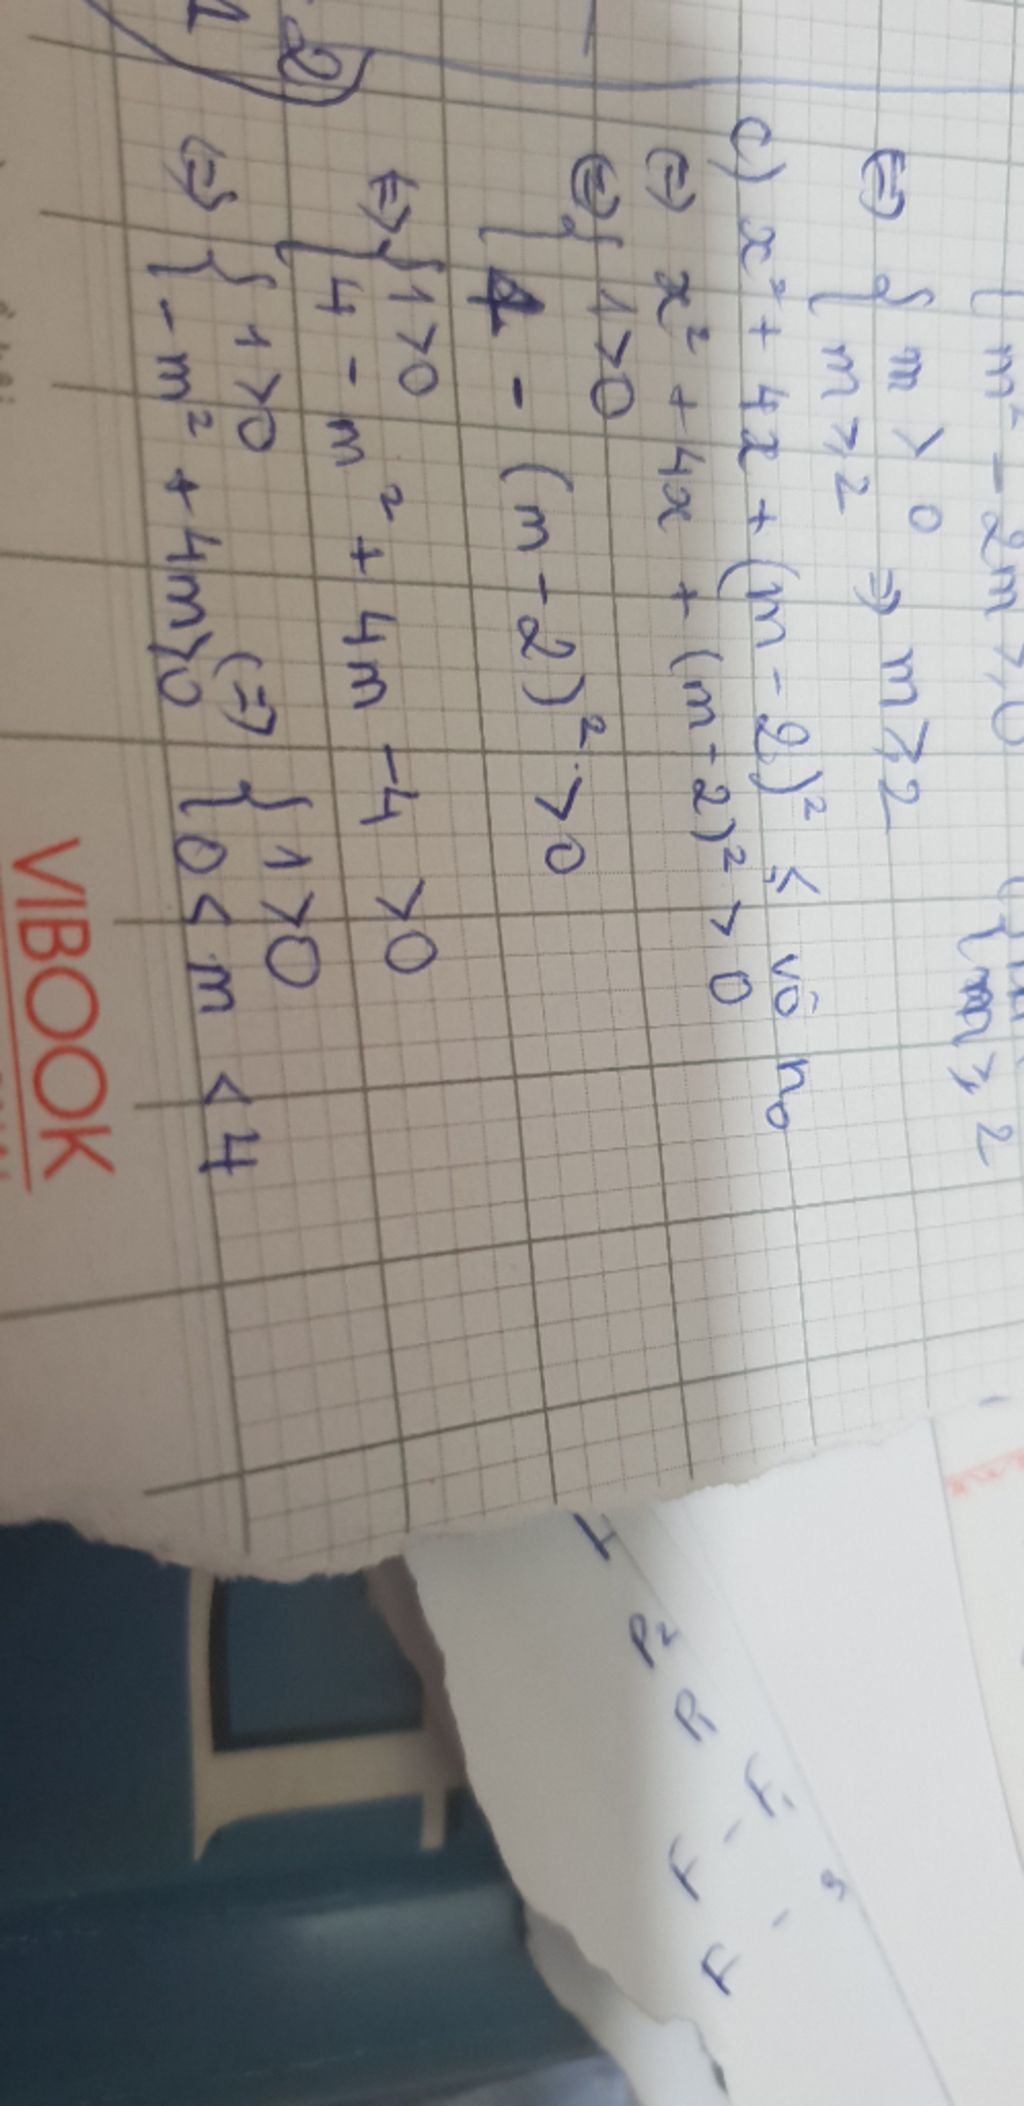 m² - 2m ≥ 0
m ≥ 2
⇔ { m > 0
{ m ≥ 2 ⇒ m ≥ 2
c) x² + 4x + (m - 2)² ≤ vô n₀
⇔ x² + 4x + (m - 2)² > 0
⇔ { 1 > 0
{ 4 - (m - 2)² > 0
⇔ { 1 > 0
{ 4 - m² + 4m - 4 > 0
⇔ { 1 > 0
{ - m² + 4m > 0 ⇔ { 1 > 0
{ 0 < m < 4
2
1
VIBOOK
P²
R
F
F
F